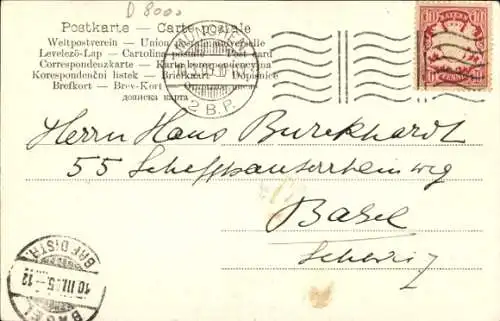 D 8000
Postkarte — Carte postale
Weltpostverein — Union postale universelle
Levelező-Lap — Cartolina postale — Post card
Correspondenzkarte — Karta korespondencyjna
Korespondenční listek — Briefkaart — Dopisnice
Brefkort — Brev-Kort
дописна карта
MÜNCHEN
2 B.P.
BAYERN
10 10
PFENNIG
Herrn Hans Burckhardt
55
Basel
Schweiz
BRF. DISTR.
10.III.05.-12
BASEL